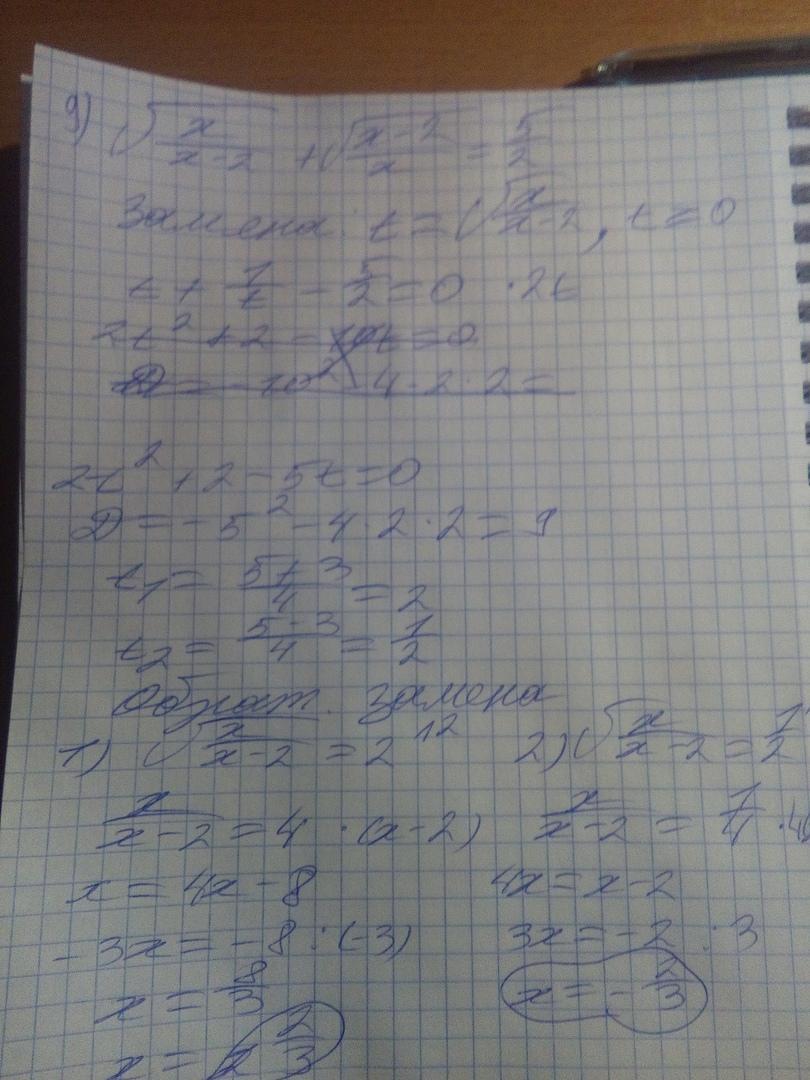 9) √(x/(x-2)) + √((x-2)/x) = 5/2
Замена: t = √(x/(x-2)), t ≥ 0
t + 1/t - 5/2 = 0 ·2t
2t² + 2 - 10t = 0
D = -10² - 4·2·2 =
2t² + 2 - 5t = 0
D = -5² - 4·2·2 = 9
t₁ = (5+3)/4 = 2
t₂ = (5-3)/4 = 1/2
Обрат. замена
1) √(x/(x-2)) = 2 |² 2) √(x/(x-2)) = 1/2
x/(x-2) = 4 ·(x-2) x/(x-2) = 1/4 ·4
x = 4x - 8 4x = x - 2
-3x = -8 :(-3) 3x = -2 :3
x = 8/3 x = -2/3
x = 2 2/3